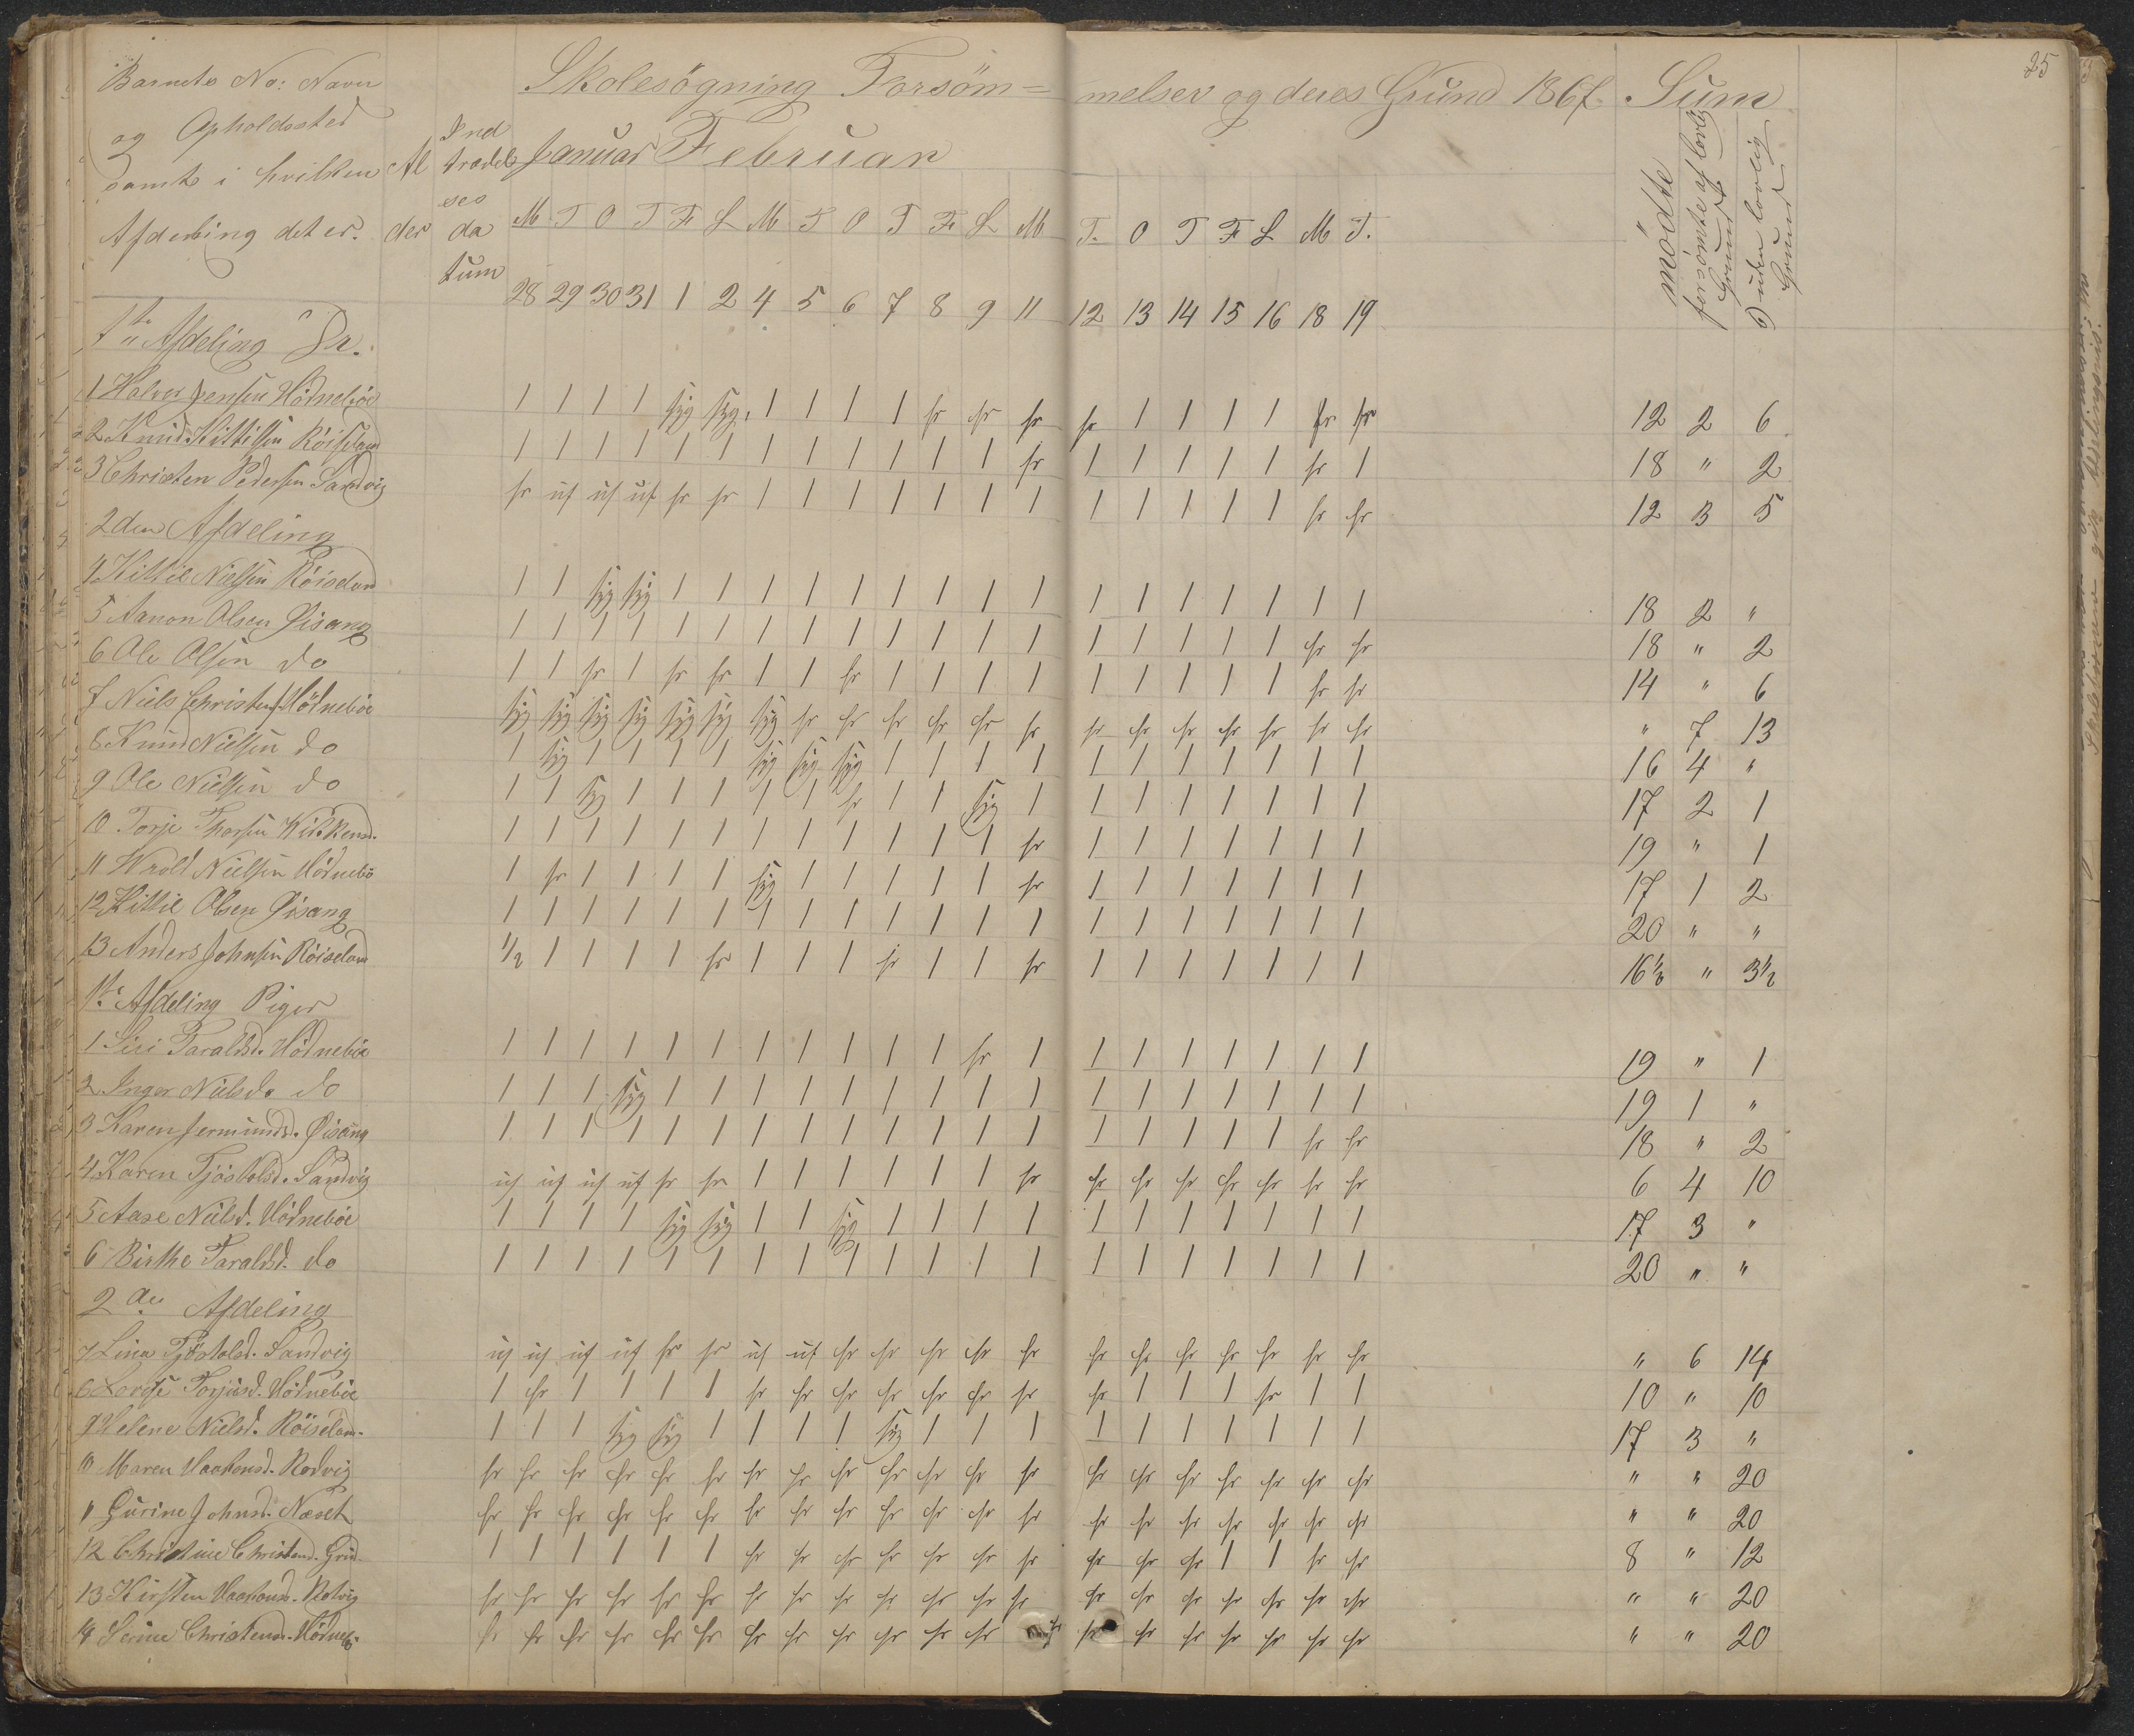 25
Skolesögning Forsöm= melser og deres Grund 1867. Sum
Barnets No: Navn
og Opholdssted
samt i hvilken
Afdeling det er.
Al
der
Ind
trædel
ses
da
tum
Januar Februar
mödte
forsömte af lovlig Grund
uden lovlig Grund
M T O T F L M T O T F L M T. O T F L M T.
28 29 30 31 1 2 4 5 6 7 8 9 11 12 13 14 15 16 18 19
1ste Afdeling Dr.
1 Halvor Jensen Hödneböe 1 1 1 1 syg syg. 1 1 1 1 fr fr fr fr 1 1 1 1 fr fr 12 2 6
2 Knud Kittilsen Röiseland 1 1 1 1 1 1 1 1 1 1 1 1 fr 1 1 1 1 1 fr 1 18 " 2
3 Christen Pedersen Sandvig fr uf uf uf fr fr 1 1 1 1 1 1 1 1 1 1 1 1 fr fr 12 3 5
2den Afdeling
4 Kittil Nielsen Röiseland 1 1 syg syg 1 1 1 1 1 1 1 1 1 1 1 1 1 1 1 1 18 2 "
5 Aanon Olsen Gisang 1 1 1 1 1 1 1 1 1 1 1 1 1 1 1 1 1 1 fr fr 18 " 2
6 Ole Olsen do 1 1 fr 1 fr fr 1 1 fr 1 1 1 1 1 1 1 1 1 fr fr 14 " 6
7 Niels Christens. Hödneböe syg syg syg syg syg syg syg fr fr fr fr fr fr fr fr fr fr fr fr fr " 7 13
8 Knud Nielsen do 1 syg 1 1 1 1 syg syg syg 1 1 1 1 1 1 1 1 1 1 1 16 4 "
9 Ole Nielsen do 1 1 syg 1 1 1 1 1 fr 1 1 syg 1 1 1 1 1 1 1 1 17 2 1
10 Torje 1 1 1 1 1 1 1 1 1 1 1 1 fr 1 1 1 1 1 1 1 19 " 1
11 Wrold Nielsen Hödnebö 1 fr 1 1 1 1 syg 1 1 1 1 1 fr 1 1 1 1 1 1 1 17 1 2
12 Kittil Olsen Gisang 1 1 1 1 1 1 1 1 1 1 1 1 1 1 1 1 1 1 1 1 20 " "
13 Anders Johnsen Röiseland 1/2 1 1 1 1 fr 1 1 1 fr 1 1 fr 1 1 1 1 1 1 1 16 1/2 " 3 1/2
1ste Afdeling Piger
1 Siri Taraldsd. Hödneböe 1 1 1 1 1 1 1 1 1 1 1 fr 1 1 1 1 1 1 1 1 19 " 1
2 Inger Nielsd. do 1 1 1 syg 1 1 1 1 1 1 1 1 1 1 1 1 1 1 1 1 19 1 "
3 Karen Jermunds. Gisang 1 1 1 1 1 1 1 1 1 1 1 1 1 1 1 1 1 1 fr fr 18 " 2
4 Karen Tjöstolsd. Sandvig uf uf uf uf fr fr 1 1 1 1 1 1 fr fr fr fr fr fr fr fr 6 4 10
5 Aase Nielsd. Hödneböe 1 1 1 1 syg syg 1 1 syg 1 1 1 1 1 1 1 1 1 1 1 17 3 "
6 Birthe Taraldsd. do 1 1 1 1 1 1 1 1 1 1 1 1 1 1 1 1 1 1 1 1 20 " "
2de Afdeling
7 Lina Tjöstolsd. Sandvig uf uf uf uf fr fr uf uf fr fr fr fr fr fr fr fr fr fr fr fr " 6 14
8 Torjusd. Hödneböe 1 fr 1 1 1 1 fr fr fr fr fr fr fr fr 1 1 1 fr 1 1 10 " 10
9 Helene Nielsd. Röiseland. 1 1 1 syg syg 1 1 1 1 syg 1 1 1 1 1 1 1 1 1 1 17 3 "
10 Maren Haakonsd. Rodvig fr fr fr fr fr fr fr fr fr fr fr fr fr fr fr fr fr fr fr fr " " 20
11 Gurine Johnsd. Næset fr fr fr fr fr fr fr fr fr fr fr fr fr fr fr fr fr fr fr fr " " 20
12 Christine Christend. 1 1 1 1 1 1 fr fr fr fr fr fr fr fr fr fr 1 1 fr fr 8 " 12
13 Kirsten Haakonsd. Rodvig fr fr fr fr fr fr fr fr fr fr fr fr fr fr fr fr fr fr fr fr " " 20
14 Christensd. Hödneb. fr fr fr fr fr fr fr fr fr fr fr fr fr fr fr fr fr fr fr fr " " 20